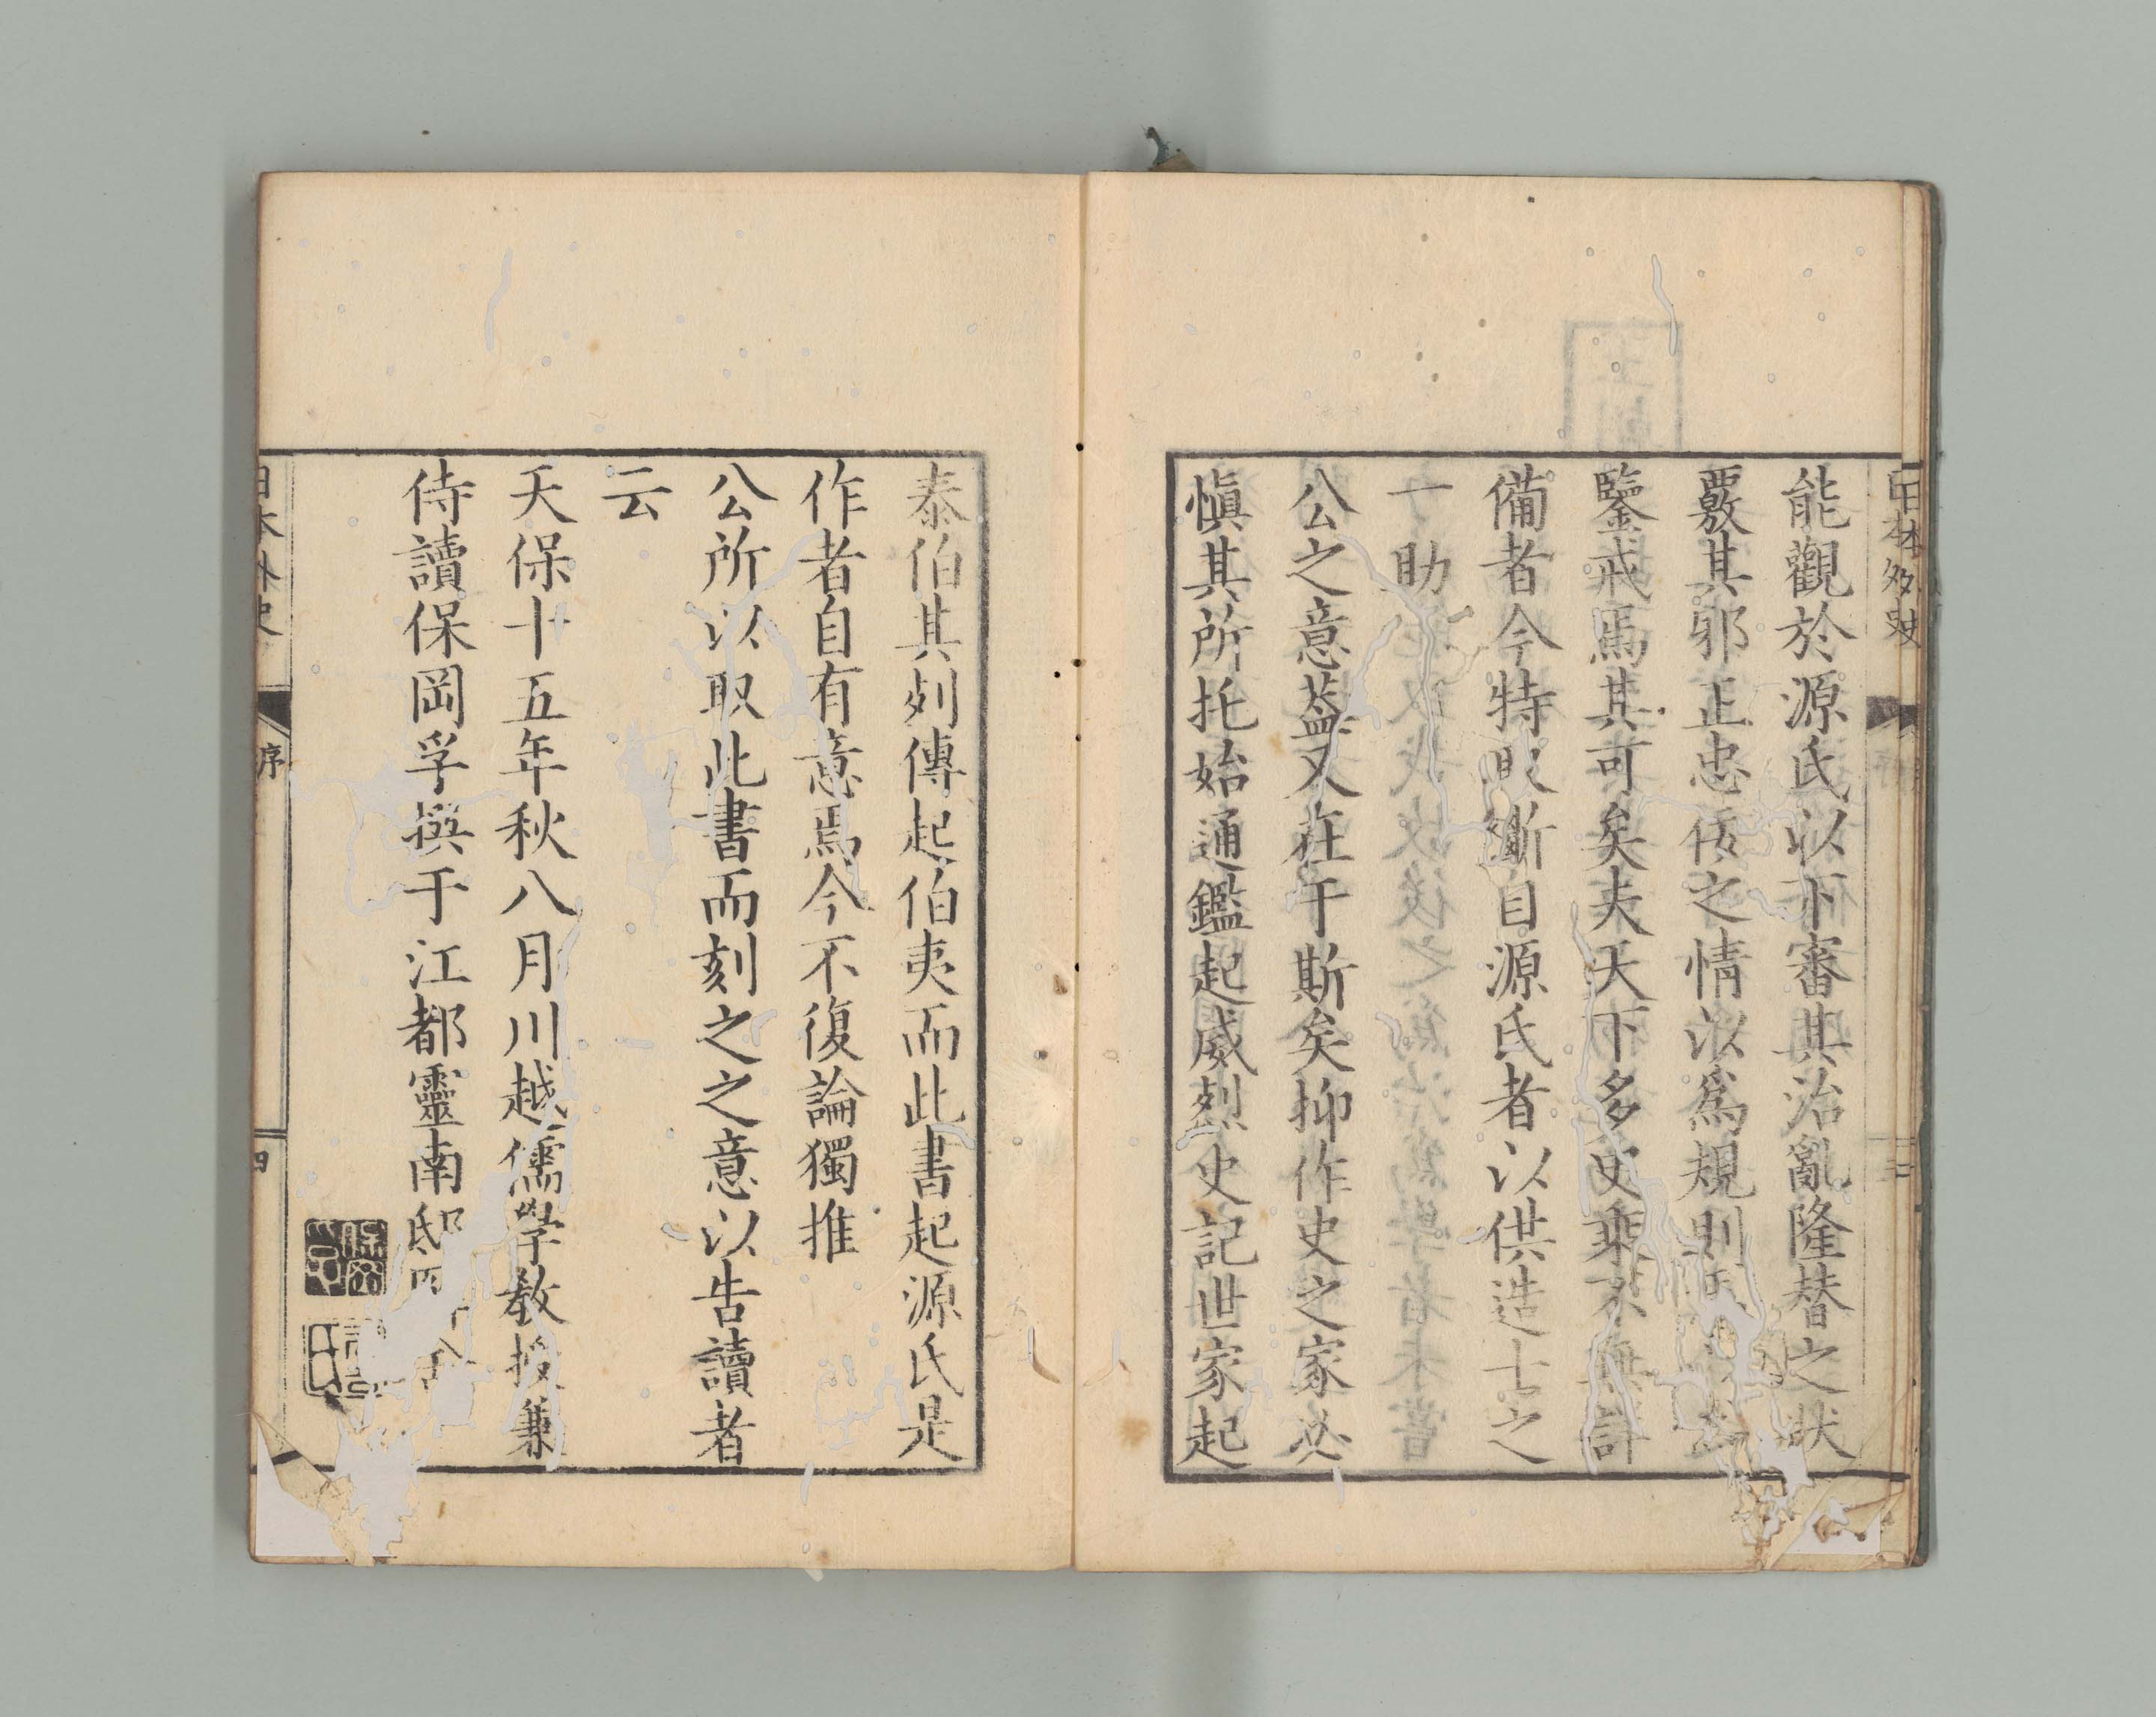 能觀於源氏以下審其治亂隆替之狀
覈其邪正忠佞之情以爲規則
鑒戒焉其可矣夫天下多史乘不無詳
備者今特斷自源氏者以供造士之
一助
公之意蓋又在于斯矣抑作史之家必
愼其所托始通鑑起威烈史記世家起
泰伯其列傳起伯夷而此書起源氏是
作者自有意焉今不復論獨推
公所以取此書而刻之之意以告讀者
云
天保十五年秋八月川越儒學教授兼
侍讀保岡孚撰于江都靈南邸
日本外史
序
四